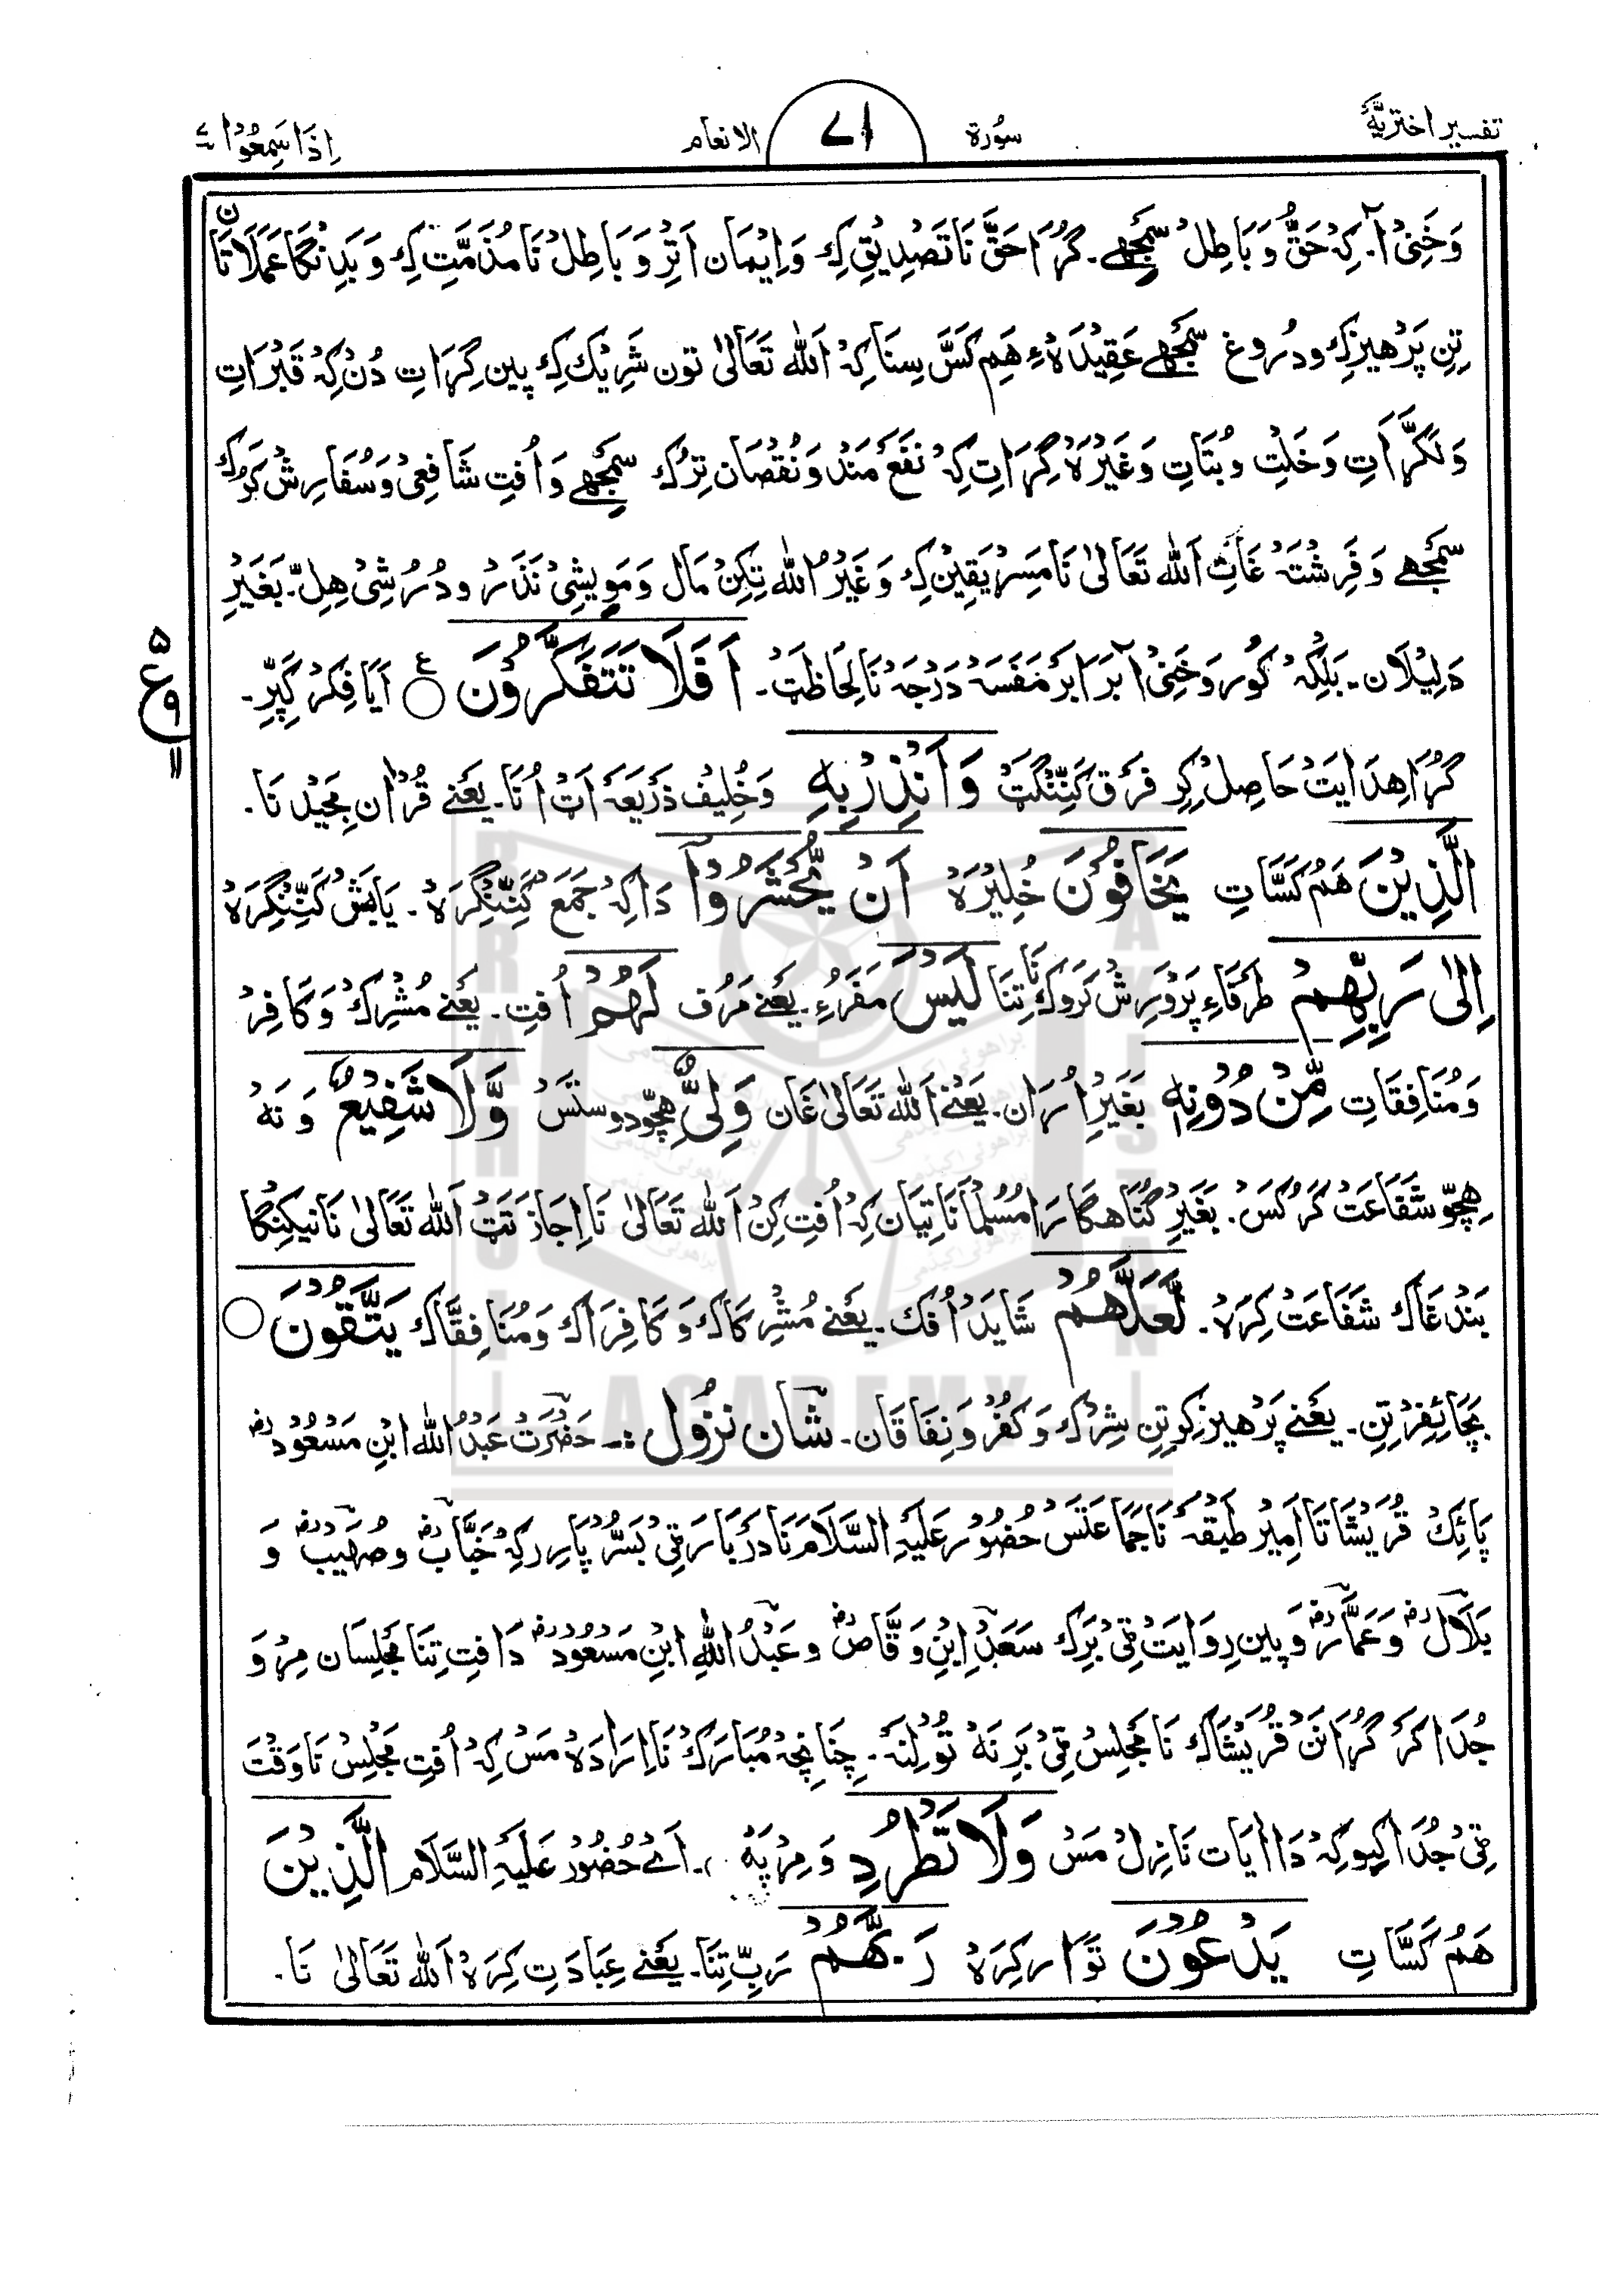 تفسیر اختریّہ
سُورۃ
۷۱
الانعام
اِذَا سَمِعُوۡا ۷
وَخَنِیۡ آ۔ کِہۡ حَقُّ وَ بَاطِلۡ سَمۡجھے۔ گُڑَا حَقَّ نَا تَصۡدِیۡقِ کِہ وَ اِیۡمَان اَتِرۡ وَ بَاطِلۡ نَا مُذَمَّتِ کِہ وَ بَدِنۡگا عَمَلَاتَا ن
تِنِ پَرۡھیزِکِہ و دُروغ سَمۡجھے عَقِیۡدَہۡءِ ھَم کَسَّ سِنَا کِہۡ اَللہ تَعَالیٰ تون شَرِیۡک کِہ پین گِرَاتِ دُنۡ کِہۡ قَبۡرَاتِ
وَ لَکَّرَاتِ وَ خَلۡتِ و بُتَاتِ وَ غَیۡرَہۡ گِرَاتِ کِہۡ نَفَعۡ مَنۡد وَ نُقۡصَان تِرۡک سَمۡجھے وَ اُفتِ شَافِعِیۡ وَ سُفَارِشۡ کَرُک
سَمۡجھے وَ فَرِشۡتَہۡ غَاتِ اَللہ تَعَالیٰ نَا مَسِرۡ یَقِیۡن کِہ وَ غَیۡرُ اللہ تِکِنۡ مَال وَ مَوِیۡشِیۡ نَذَرۡ و دُرُشِیۡ ھِلِّ۔ بَغَیۡرِ
دَلِیۡلَان۔ بَلۡکِہۡ کُور وَ خَنِیۡ آ بَرَابَرۡ مَفَسَہۡ دَرۡجَہۡ نَا لِحَاظَتۡ۔ اَفَلَا تَتَفَکَّرُوۡنَ ۝ ع اَیَا فِکۡر کَپِّرِ۔
ع ۵ ۹ ۱۱
گُڑَا ھِدَایَتۡ حَاصِلۡ کِرِ فَرَق کَنِّنۡگَتۡ وَ اَنۡذِرۡ بِہِ وَ خُلِیۡف ذَرِیۡعَہۡ اَتۡ اُنَا۔ یَعۡنے قُرۡاٰنِ مَجِیۡد نَا۔
الَّذِیۡنَ ھَمۡ کَسَّاتِ یَخَافُوۡنَ خُلِیۡرَہۡ اَنۡ یُّحۡشَرُوۡۤا دَا کِہۡ جَمَعَ کَنِّنۡگِرَہۡ۔ یَا بَشۡ کَنِّنۡگِرَہۡ
اِلٰی رَبِّھِمۡ طَرَفَاءِ پَرۡوَرِشۡ کَرُوک نَا تِنَا لَیۡسَ مَفَرَءِ۔ یَعۡنے مَرُف لَھُمۡ اُفتِ۔ یَعۡنے مُشۡرِکۡ وَ کَافِرۡ
وَ مُنَافِقَاتِ مِّنۡ دُوۡنِہٖ بَغَیۡرِ اُرَان۔ یَعۡنے اَللہ تَعَالیٰ غَان وَلِیٌّ ھِچّو دوستَسۡ وَّلَا شَفِیۡعٌ وَ نَہ
ھِچّو شَفَاعَتۡ کَرُکَسۡ۔ بَغَیۡرِ گُنَاھگارَا مُسُلمَانَاتِیَان کِہۡ اُفتِ کِنۡ اَللہ تَعَالیٰ نَا اِجَازَتَتۡ اَللہ تَعَالیٰ نَا نیکِنۡگا
بَنۡدغَاک شَفَاعَتۡ کِرَہۡ۔ لَّعَلَّھُمۡ شَایَدۡ اُفک۔ یَعۡنے مُشۡرِکَاک وَ کَافِرَاک وَ مُنَافِقَاک یَتَّقُوۡنَ ۝
بَچَائِفِرۡ تِنِ۔ یَعۡنے پَرۡھیز کِرۡ تِنِ شِرۡک وَ کُفۡرۡ وَ نِفَاقَان۔ شَانِ نزُول :۔ حَضۡرَتۡ عَبۡدُ اللہ ابۡنِ مَسۡعُوۡدؓ
پَائِک قُرَیۡشَاتَا اَمِیۡرۡ طَبۡقَہۡ نَا جَمَاعَتَسۡ حُضُوۡر عَلَیۡہِ السَّلَام نَا دَرۡبَار ٹِیۡ بَسُّرۡ پَارِر کِہۡ خَبَّابؓ و صُھَیۡبؓ وَ
بِلَالؓ وَ عَمَّارؓ وَ پین رِوَایَتۡ ٹِیۡ بَرِک سَعَدۡ اِبۡنِ وَقَّاصؓ و عَبۡدُ اللہِ ابۡنِ مَسۡعُوۡدؓ دَافتِ تِنَا مَجۡلِسَان مِرۡ وَ
جُدَا کَر گُڑَا نَنۡ قُرَیۡشَاک نَا مَجۡلِسۡ ٹِیۡ بَرِنَہۡ تُوۡلِنَہ۔ چِنَانۡچِہۡ مُبَارَکۡ نَا اِرَادَہۡ مَسۡ کِہۡ اُفتِ مَجۡلِسۡ نَا وَقۡتَ
ٹِیۡ جُدَا کِیوکِہۡ دَا اٰیَات نَازِلۡ مَسۡ وَلَا تَطۡرُدِ وَ مِرۡ پَہ۔ اَےۡ حُضُوۡر عَلَیۡہِ السَّلَام الَّذِیۡنَ
ھَمۡ کَسَّاتِ یَدۡعُوۡنَ تَوَار کِرَہۡ رَبَّھُمۡ رَبِّ تِنَا۔ یَعۡنے عِبَادَتِ کِرَہۡ اَللہ تَعَالیٰ نَا۔
BRAHUI
ACADEMY
PAKISTAN
براھوئی اکیڈمی